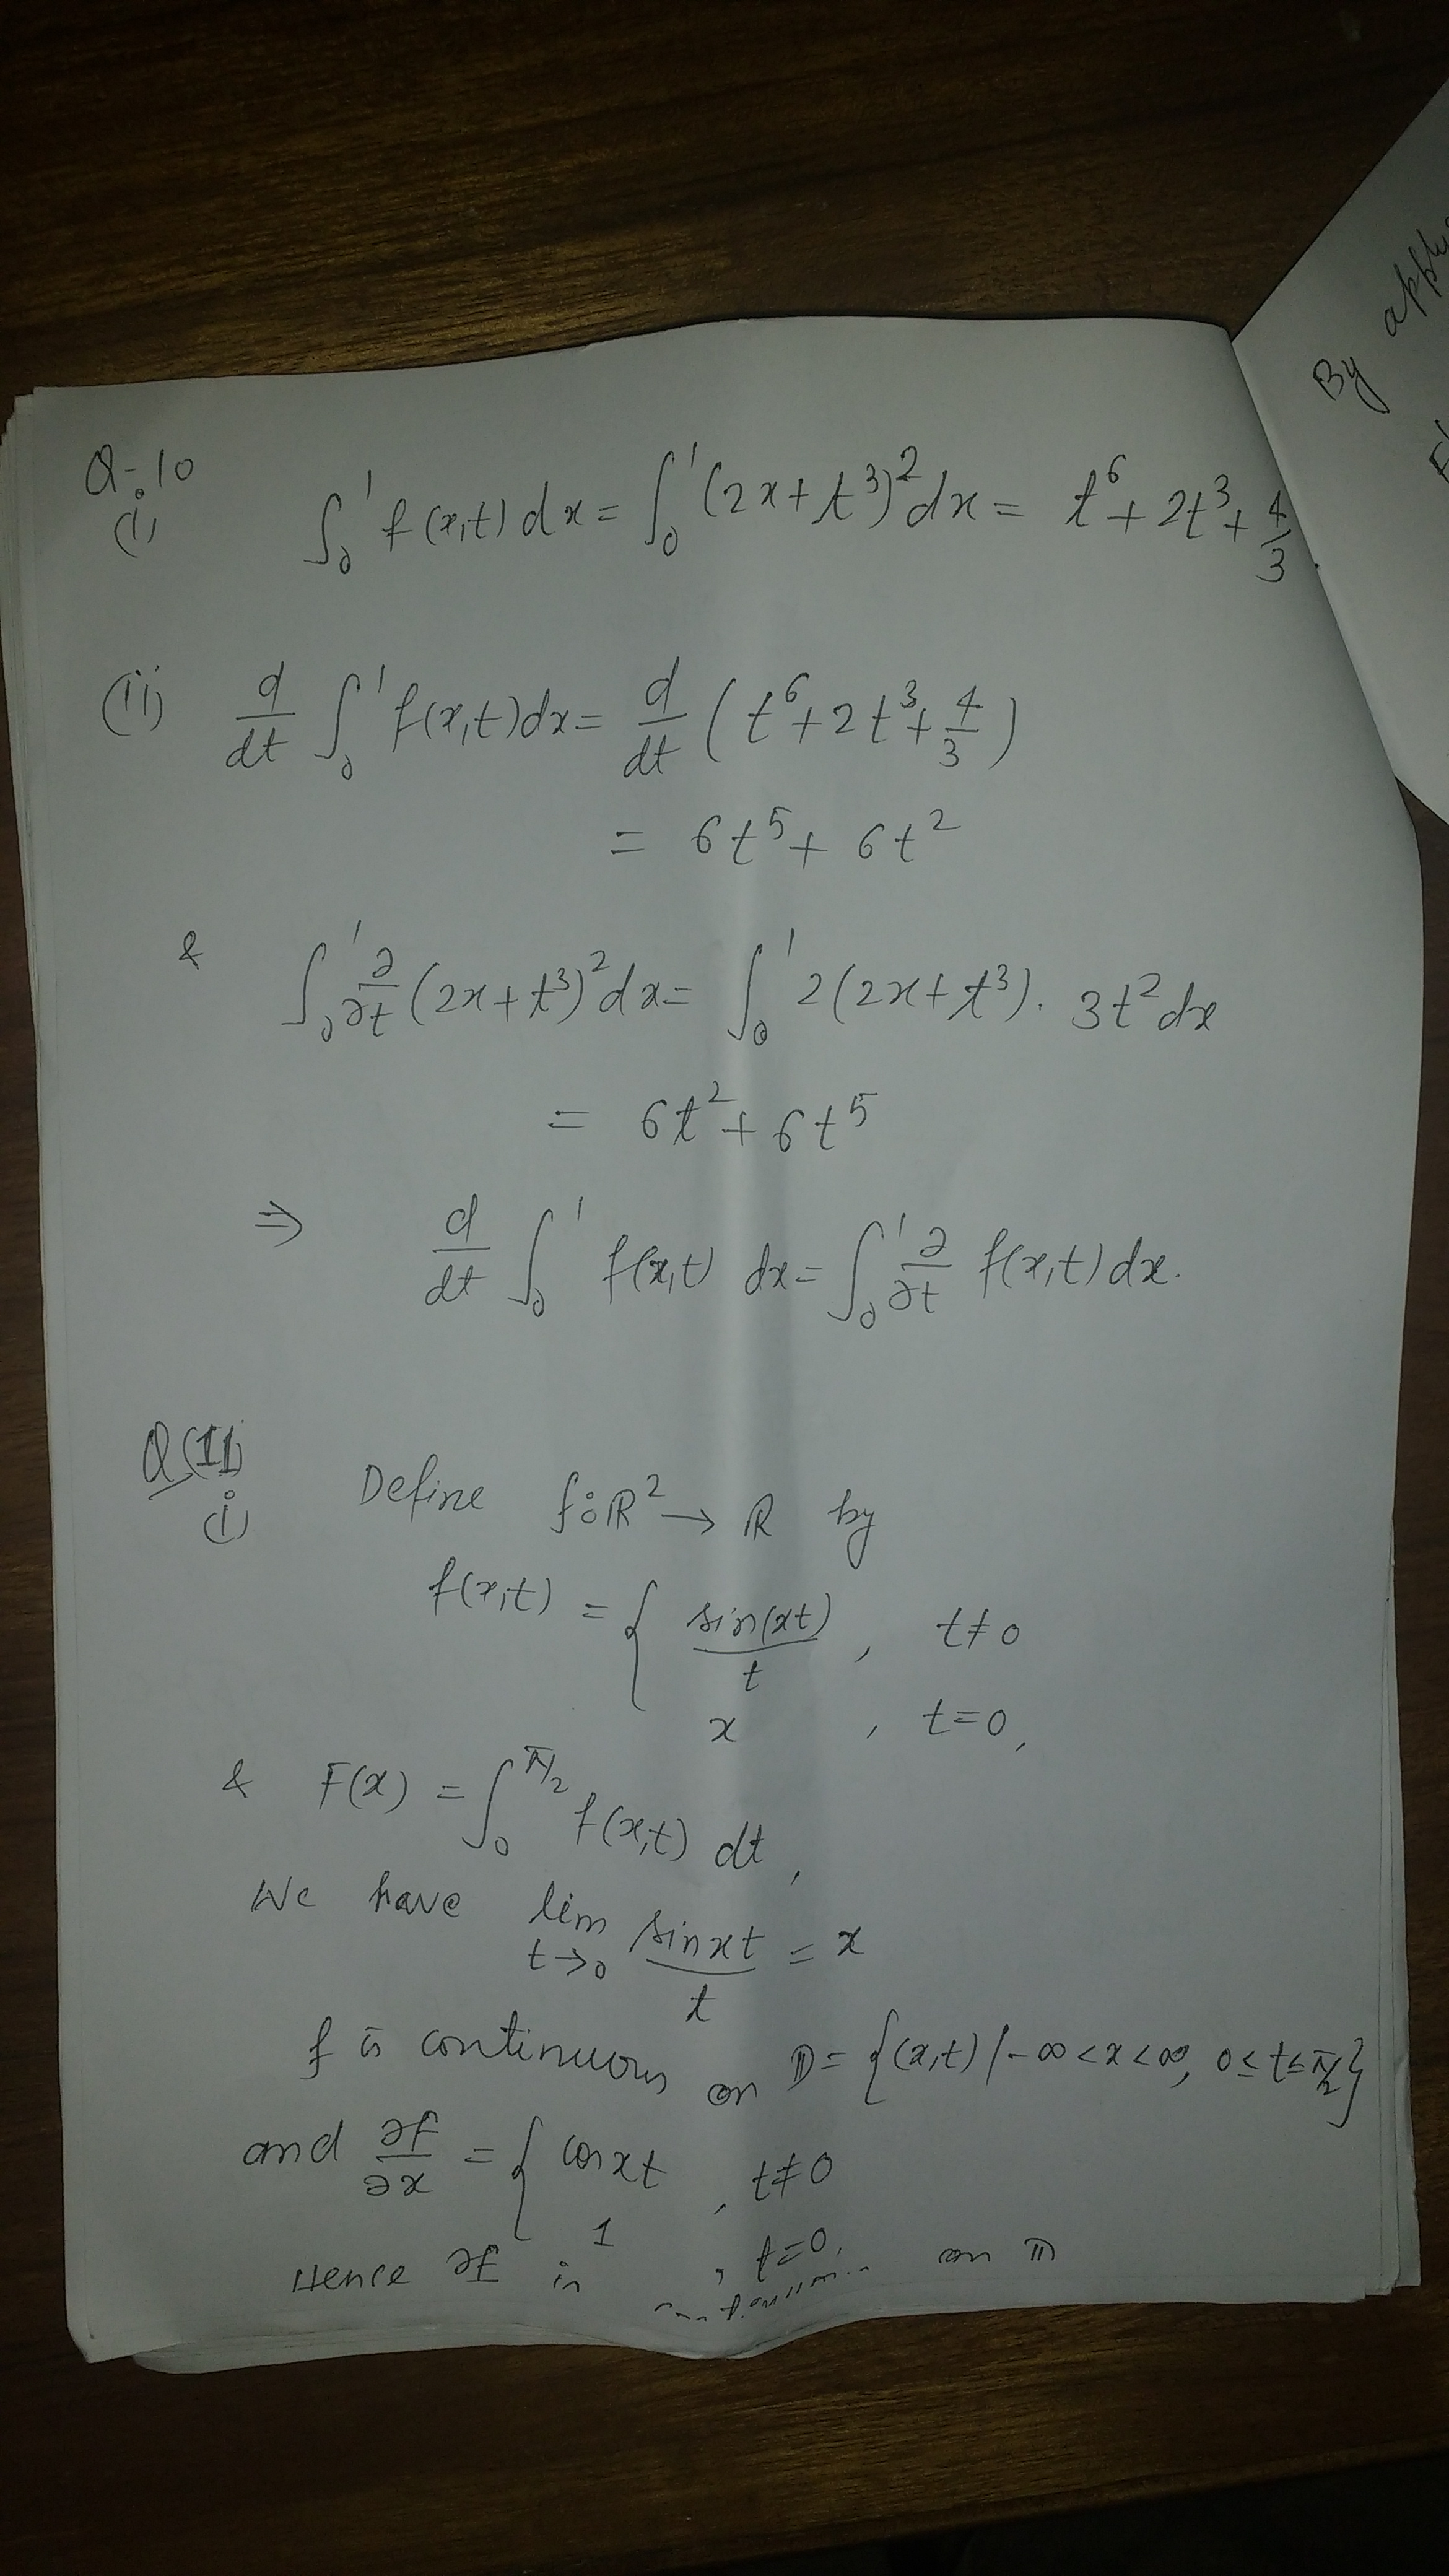 Q-10
(i) ∫₀¹ f(x,t) dx = ∫₀¹ (2x+t³)² dx = t⁶ + 2t³ + 4/3
(ii) d/dt ∫₀¹ f(x,t) dx = d/dt (t⁶ + 2t³ + 4/3)
= 6t⁵ + 6t²
& ∫₀¹ ∂/∂t (2x+t³)² dx = ∫₀¹ 2(2x+t³). 3t² dx
= 6t² + 6t⁵
⇒ d/dt ∫₀¹ f(x,t) dx = ∫₀¹ ∂/∂t f(x,t) dx.
Q(11)
(i) Define f: ℝ² → ℝ by
f(x,t) = { sin(xt)/t , t≠0
x , t=0,
& F(x) = ∫₀^{π/2} f(x,t) dt,
We have lim t→0 sin xt / t = x
f is continuous on D = {(x,t) / -∞ < x < ∞, 0 ≤ t ≤ π/2}
and ∂f/∂x = { cos xt , t≠0
1 , t=0,
Hence ∂f is continuous on D
By